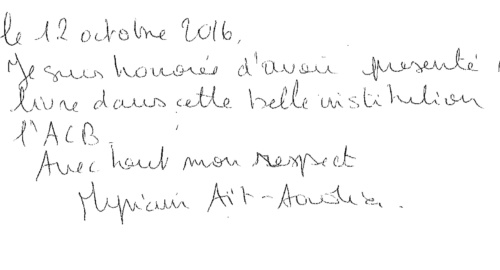 le 12 octobre 2016,
Je suis honorée d'avoir presenté
livre dans cette belle institution
l'ACB.
Avec tout mon respect
Myriam Aït-